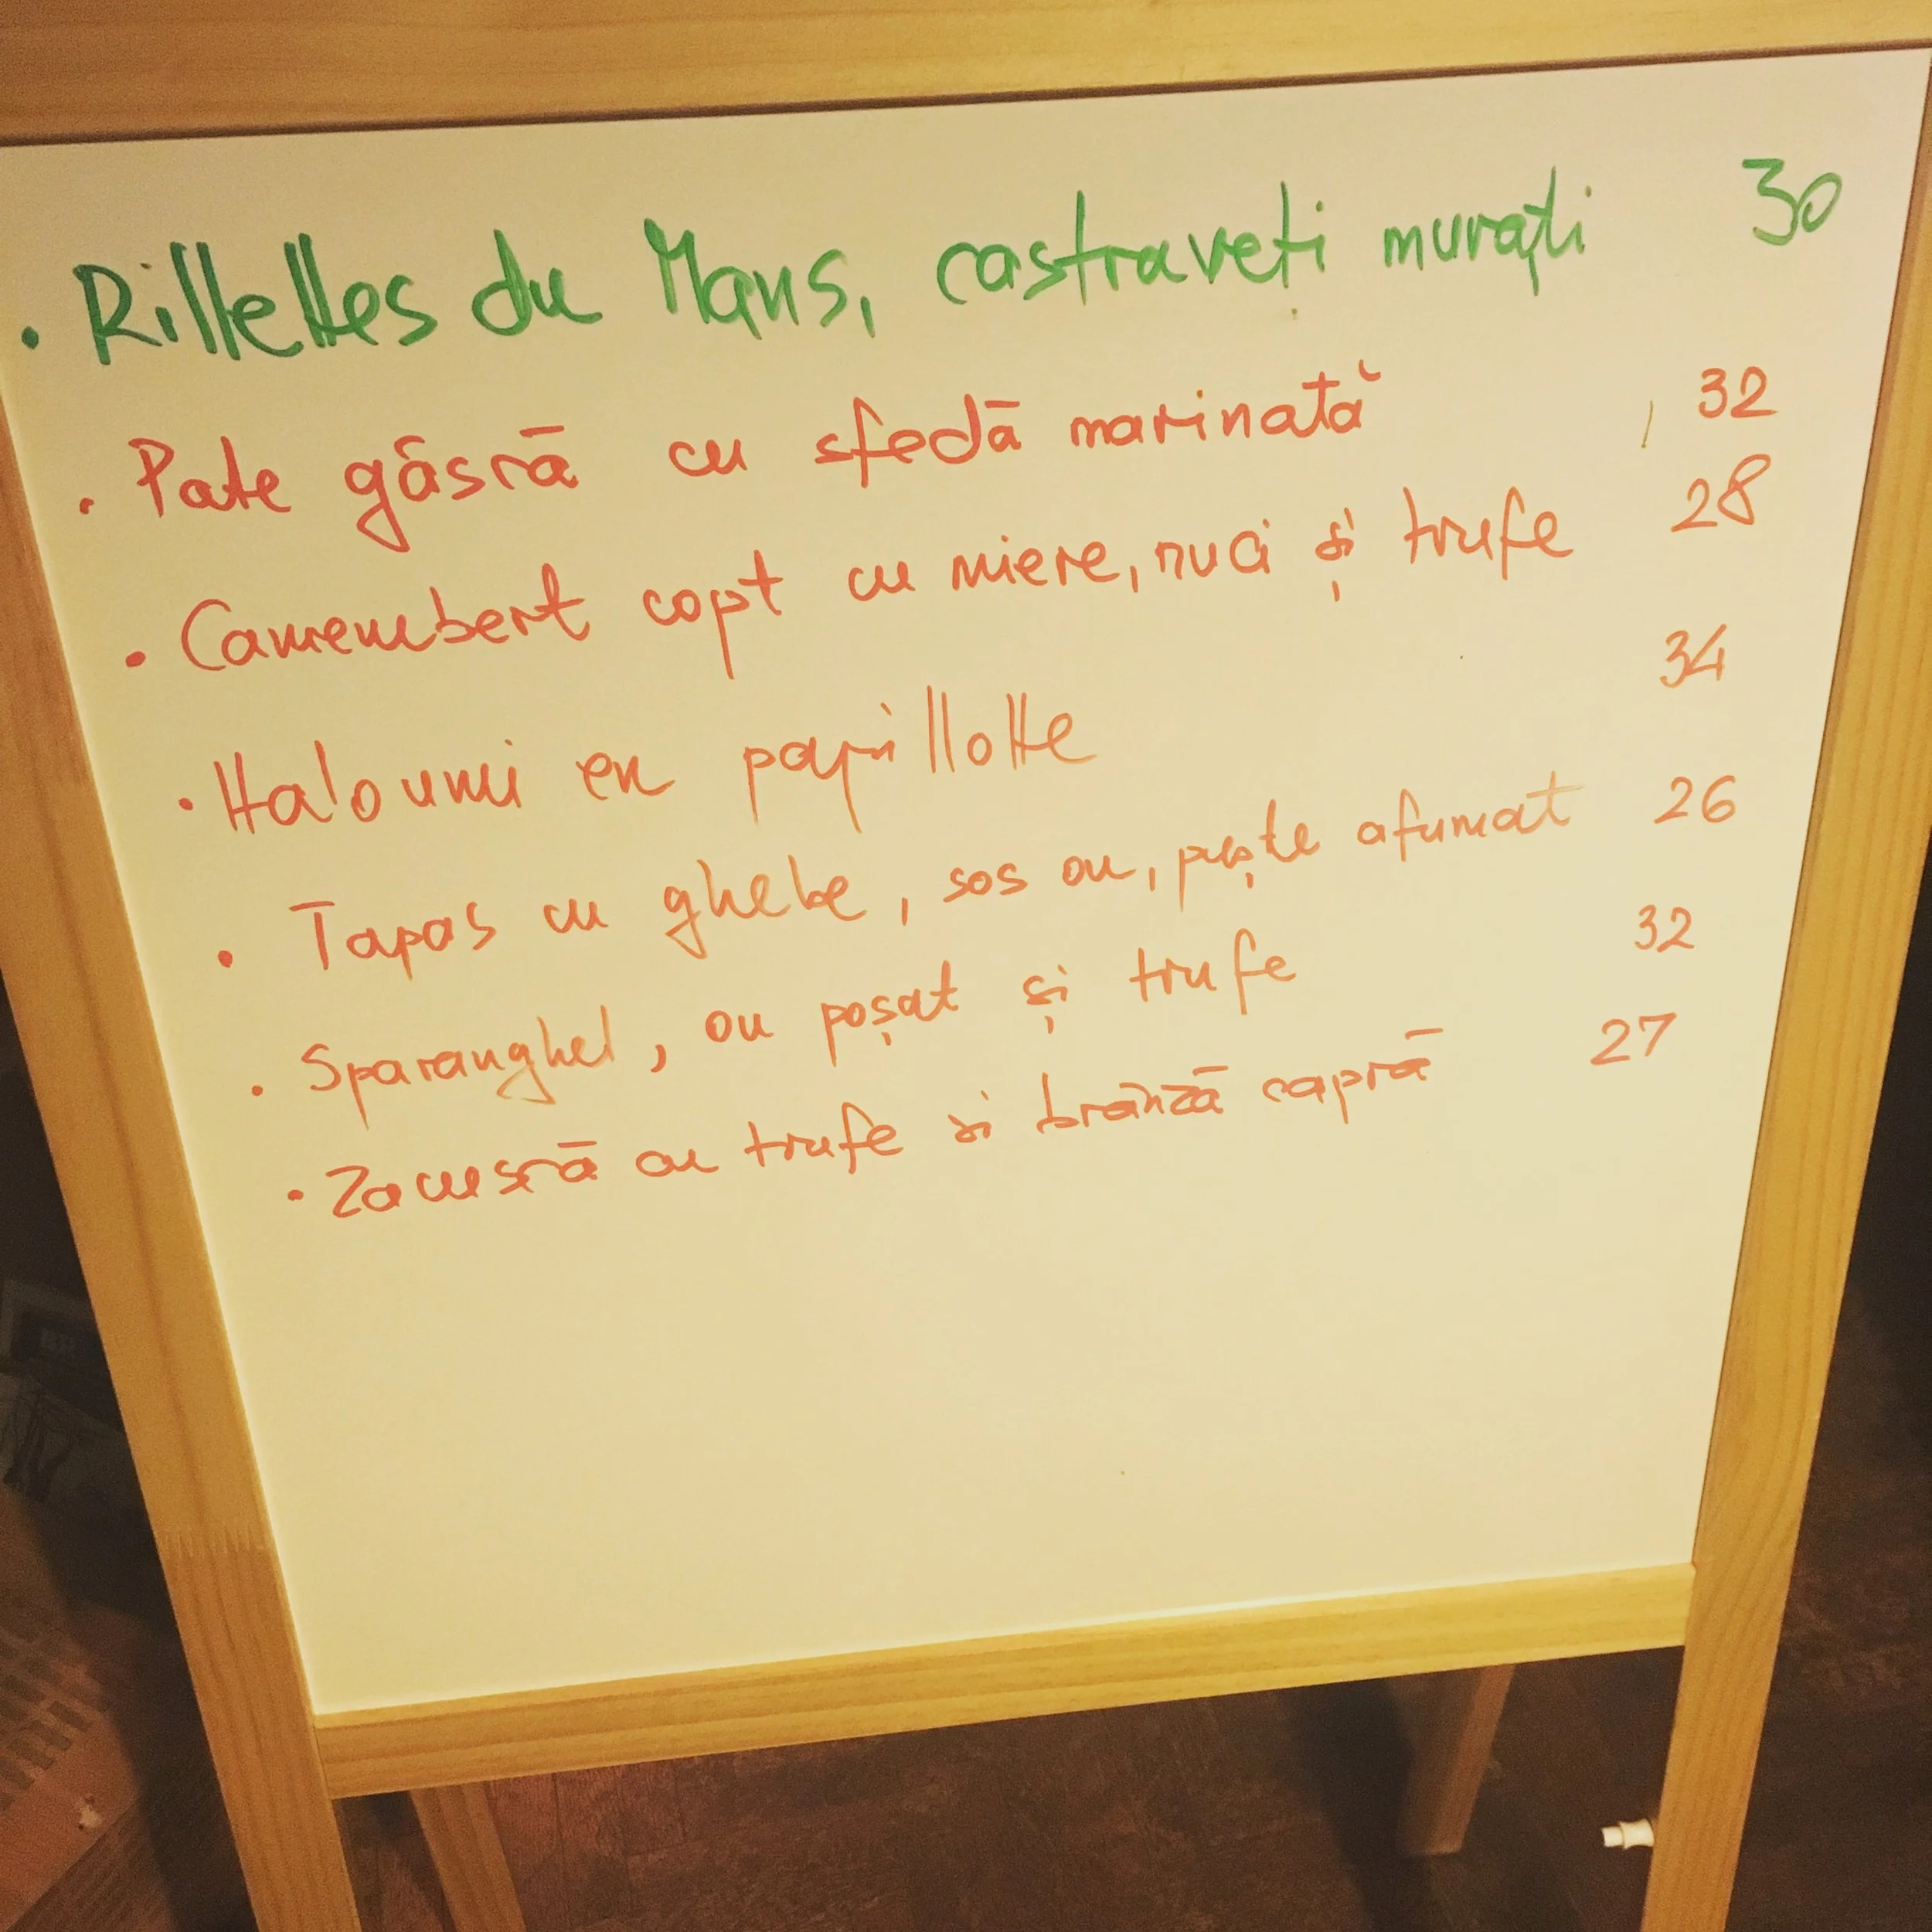 • Rillettes du Mans, castraveți murați 30
• Pate gâscă cu sfeclă marinată 32
• Camembert copt cu miere, nuci și trufe 28
• Haloumi en papillotte 34
• Tapas cu ghebe, sos ou, pește afumat 26
• Sparanghel, ou poșat și trufe 32
• Zacuscă cu trufe si brânză capră 27